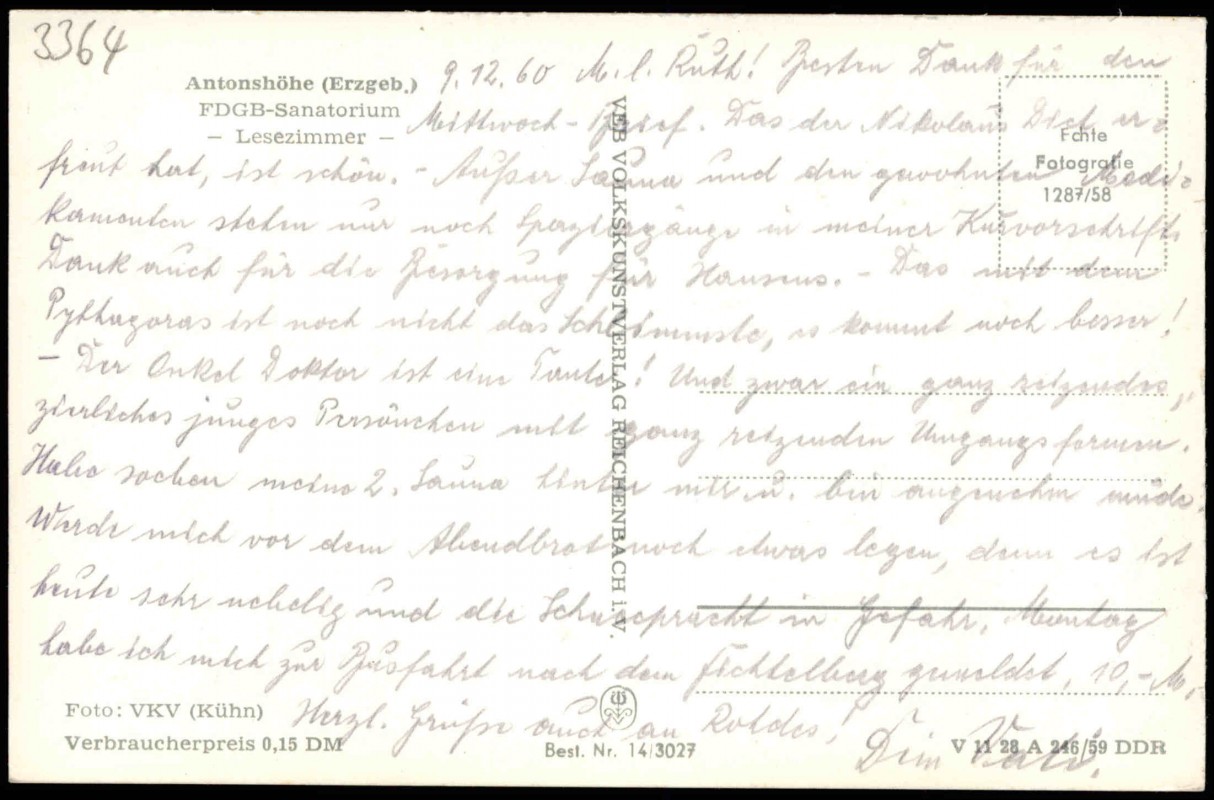 3364
Antonshöhe (Erzgeb.)
FDGB-Sanatorium
– Lesezimmer –
9.12.60 M. l. Ruth! Besten Dank für den
Mittwoch-Brief. Das der Nikolaus Dich er-
freut hat, ist schön. - Außer Sauna und den gewohnten Medi-
kamenten stehen nur noch Spaziergänge in meiner Kurvorschrift.
Dank auch für die Besorgung für Hansens. - Das mit dem
Pythagoras ist noch nicht das Schlimmste, es kommt noch besser!
- Der Onkel Doktor ist eine Tante! Und zwar ein ganz reizendes,
zierliches junges Persönchen mit ganz reizenden Umgangsformen.
Habe soeben meine 2. Sauna hinter mir u. bin angenehm müde.
Werde mich vor dem Abendbrot noch etwas legen, denn es ist
heute sehr nebelig und die Schneepracht in Gefahr. Montag
habe ich mich zur Busfahrt nach dem Fichtelberg gemeldet, 10,- M.
Herzl. Grüße auch an
Dein Vati.
Echte
Fotografie
1287/58
VEB VOLKSKUNSTVERLAG REICHENBACH i.V.
Foto: VKV (Kühn)
Verbraucherpreis 0,15 DM
Best. Nr. 14/3027
V 11 28 A 246/59 DDR